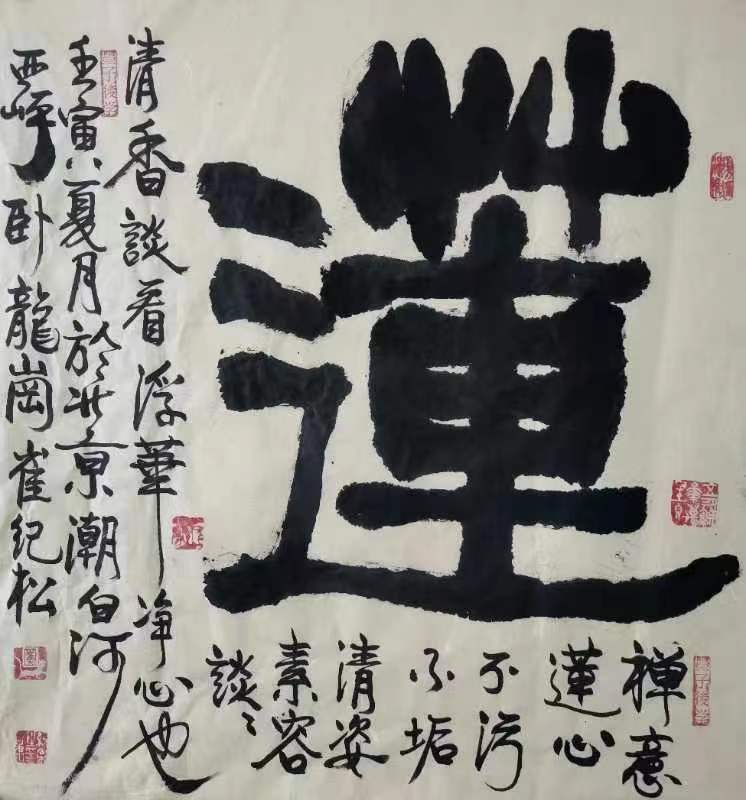 蓮
禅意
蓮心
不污
不垢
清姿
素容
談〻
清香談看浮華净心也
壬寅夏月於北京潮白河
西岸卧龍崗崔纪松